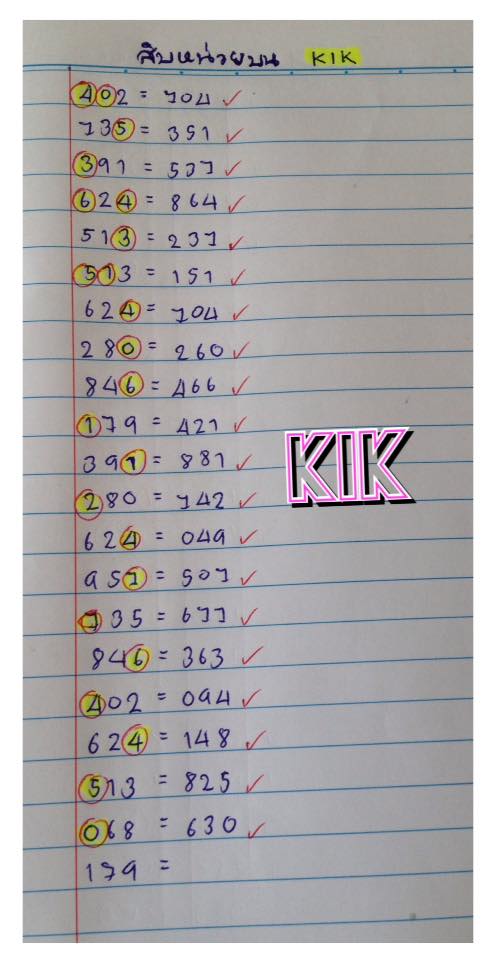 สิบหน่วยบน KIK
402 = 704 ✓
735 = 351 ✓
391 = 507 ✓
624 = 864 ✓
513 = 237 ✓
513 = 151 ✓
624 = 704 ✓
280 = 260 ✓
846 = 466 ✓
179 = 421 ✓
391 = 881 ✓
KIK
280 = 742 ✓
624 = 049 ✓
957 = 507 ✓
735 = 677 ✓
846 = 363 ✓
402 = 094 ✓
624 = 148 ✓
513 = 825 ✓
068 = 630 ✓
179 =